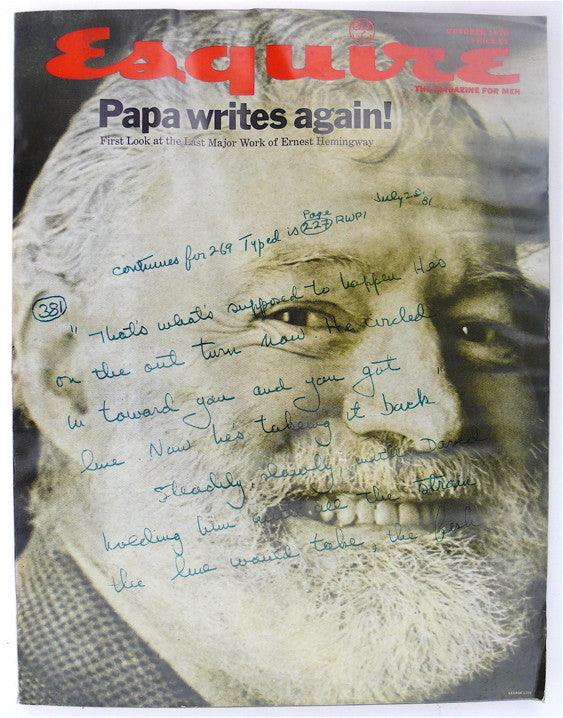 Esquire
OCTOBER 1970
PRICE $1
THE MAGAZINE FOR MEN
Papa writes again!
First Look at the Last Major Work of Ernest Hemingway
July 20,
51
continues for 269 Typed is Page 227 RWP1
381
"That's what's supposed to happen He's
on the out turn now. He circled
in toward you and you got
line. Now he's taking it back"
Steadily, slowly with David
holding him with all the strain
the line would take, the fish